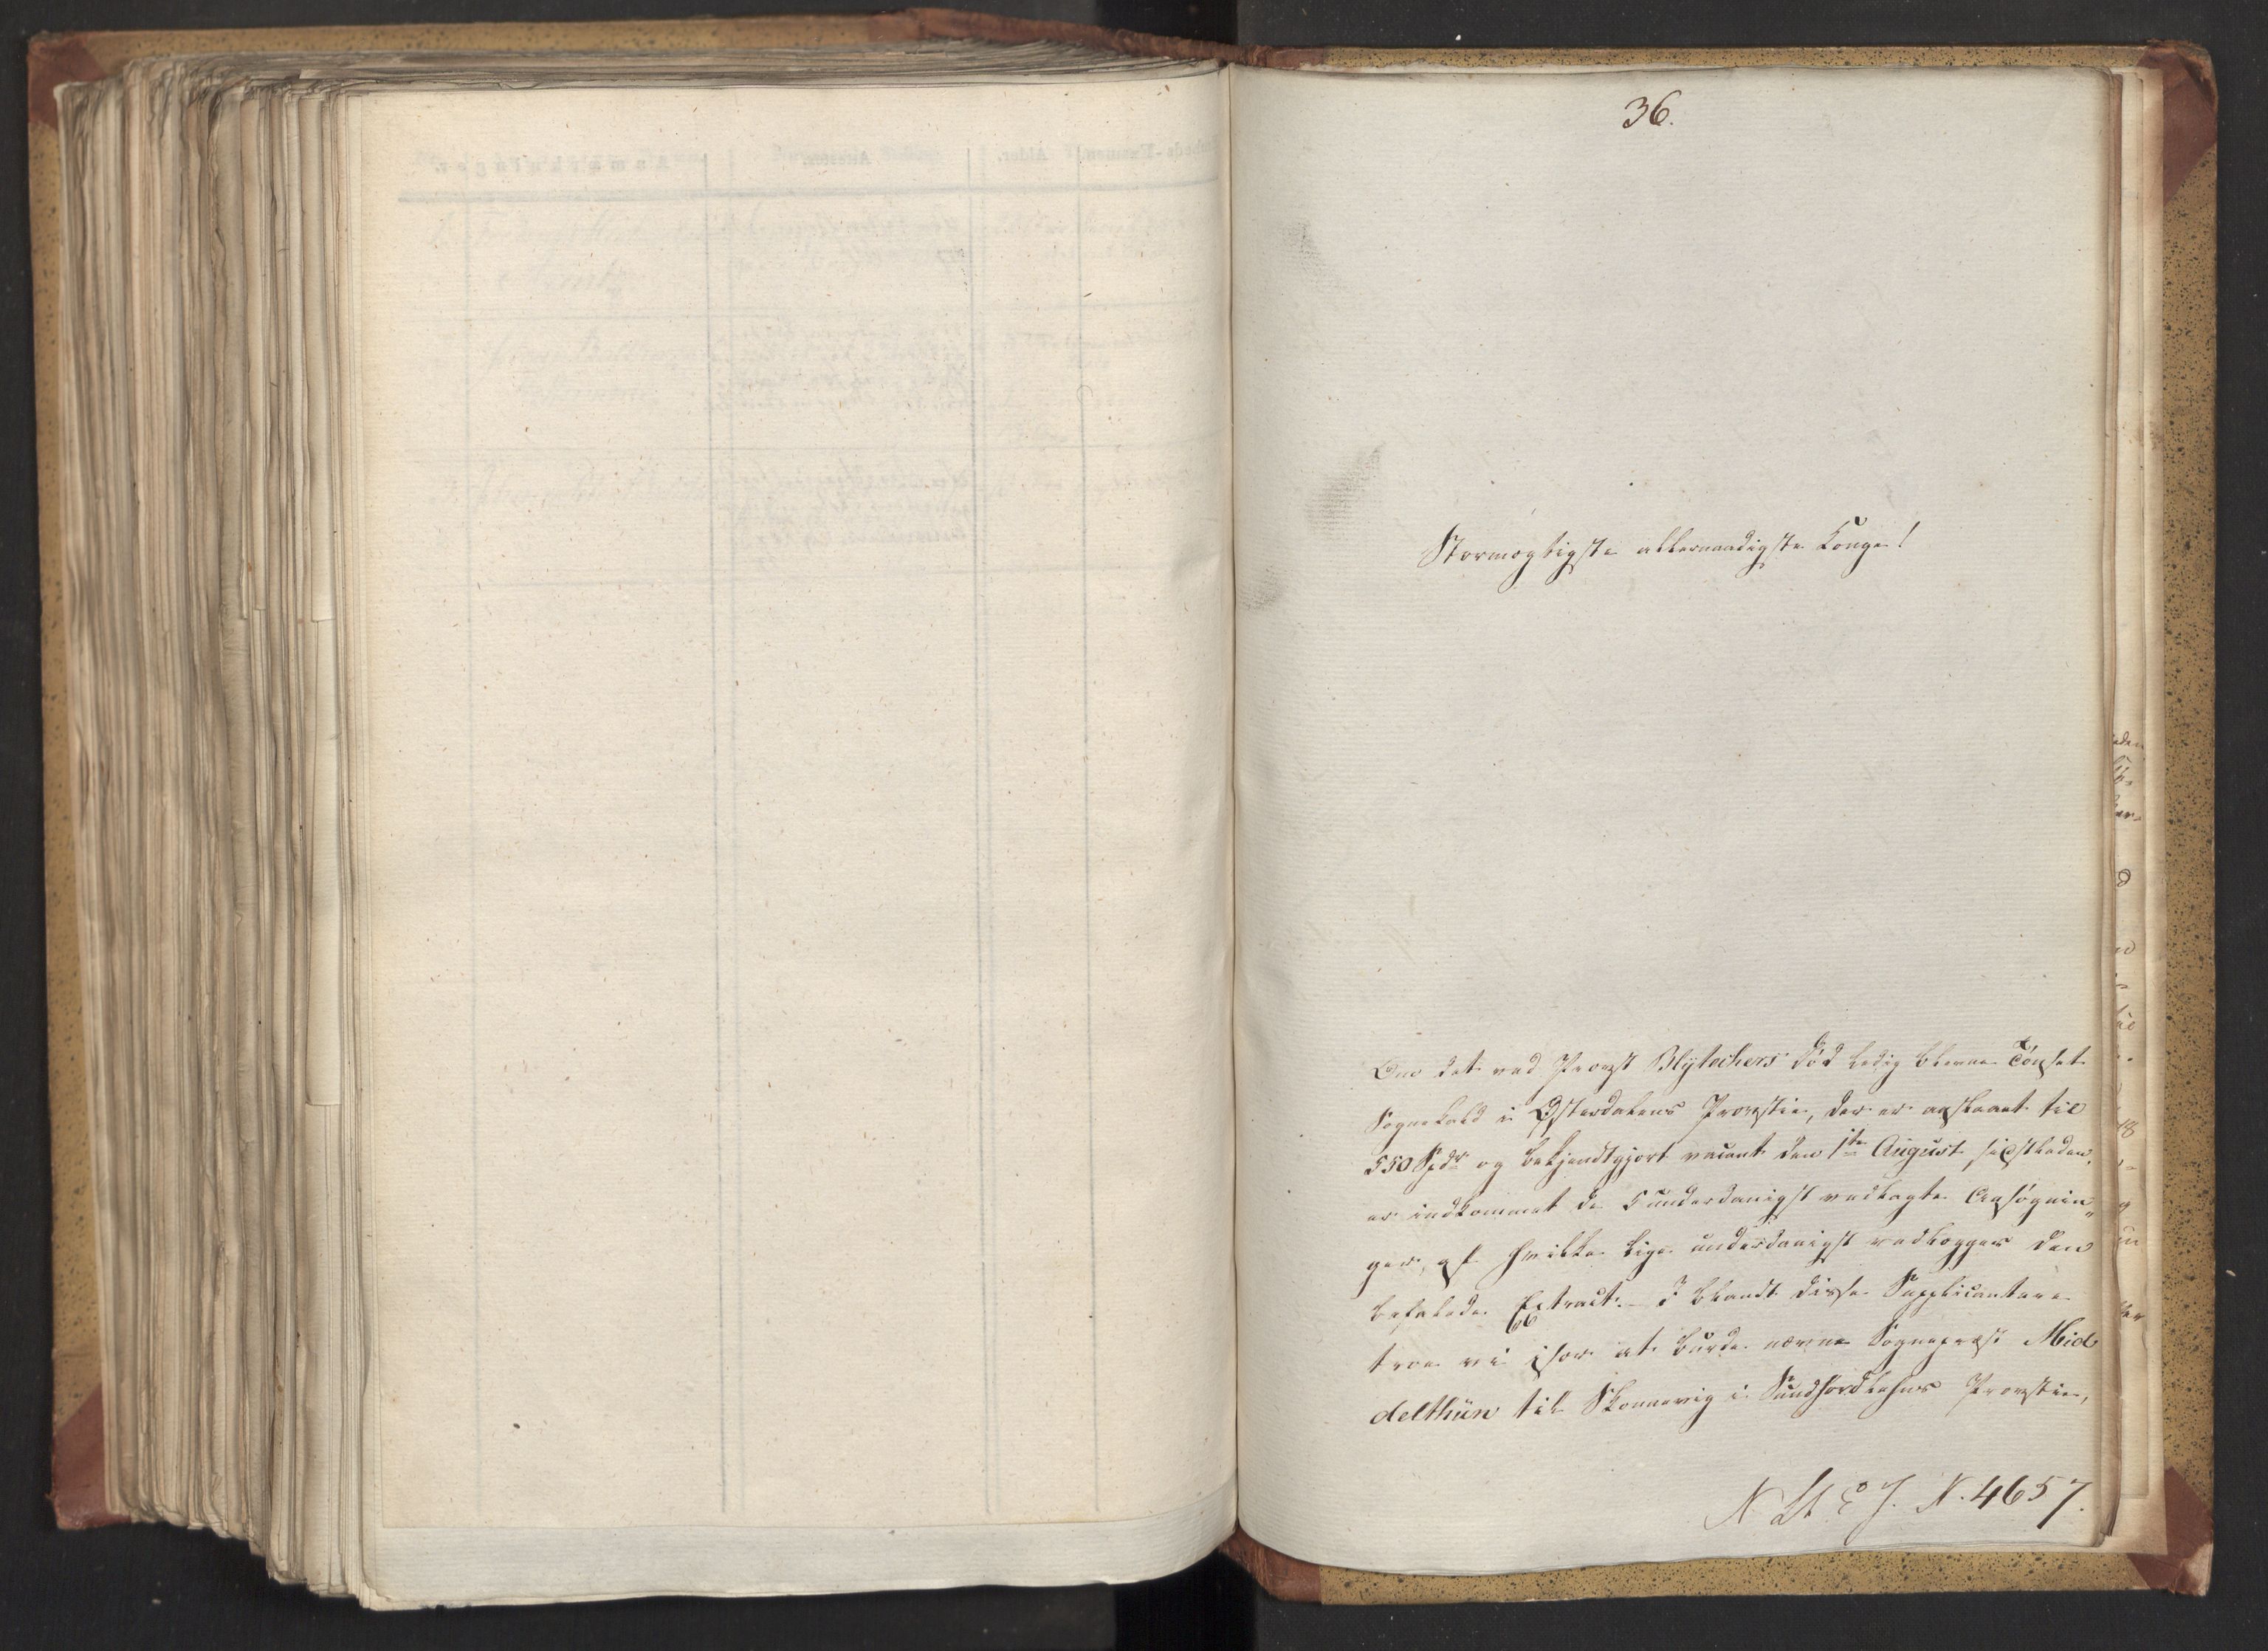 36.
Stormægtigste allernaadigste Konge!
Om det ved Provst Blytechers død ledig blevne Tönset
Sognekald i Østerdalens Provstie, der er anslaaet til
550 Spdr og bekjendtgjort vacant den 1te August sidstleden,
er indkommet de 5 underdanigst vedlagte Ansøgnin„
ger, af hvilke lige underdanigst vedlægges den
befalede Extract. I blandt disse Supplicantere
troe vi især at burde nævne Sognepræst Mid
delthün til Skonnevig i Sundhordlehns Provstie,
N. 4657.